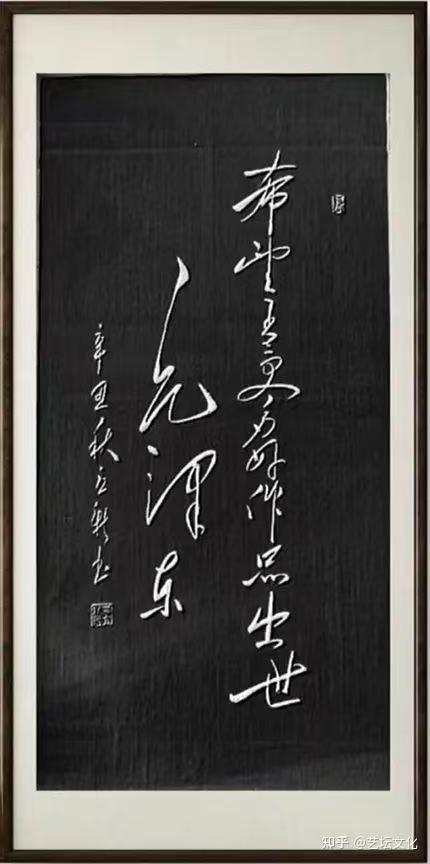 希望有更多好作品出世
毛泽东
辛丑秋立新书
知乎 @艺坛文化